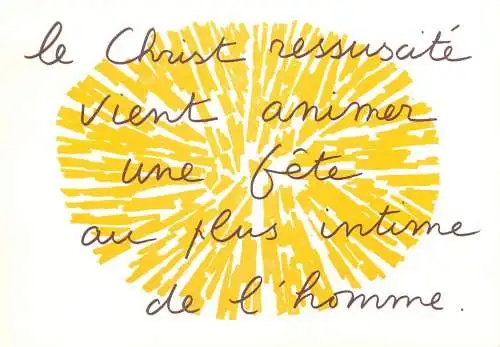 le Christ ressuscité
vient animer
une fête
au plus intime
de l'homme.